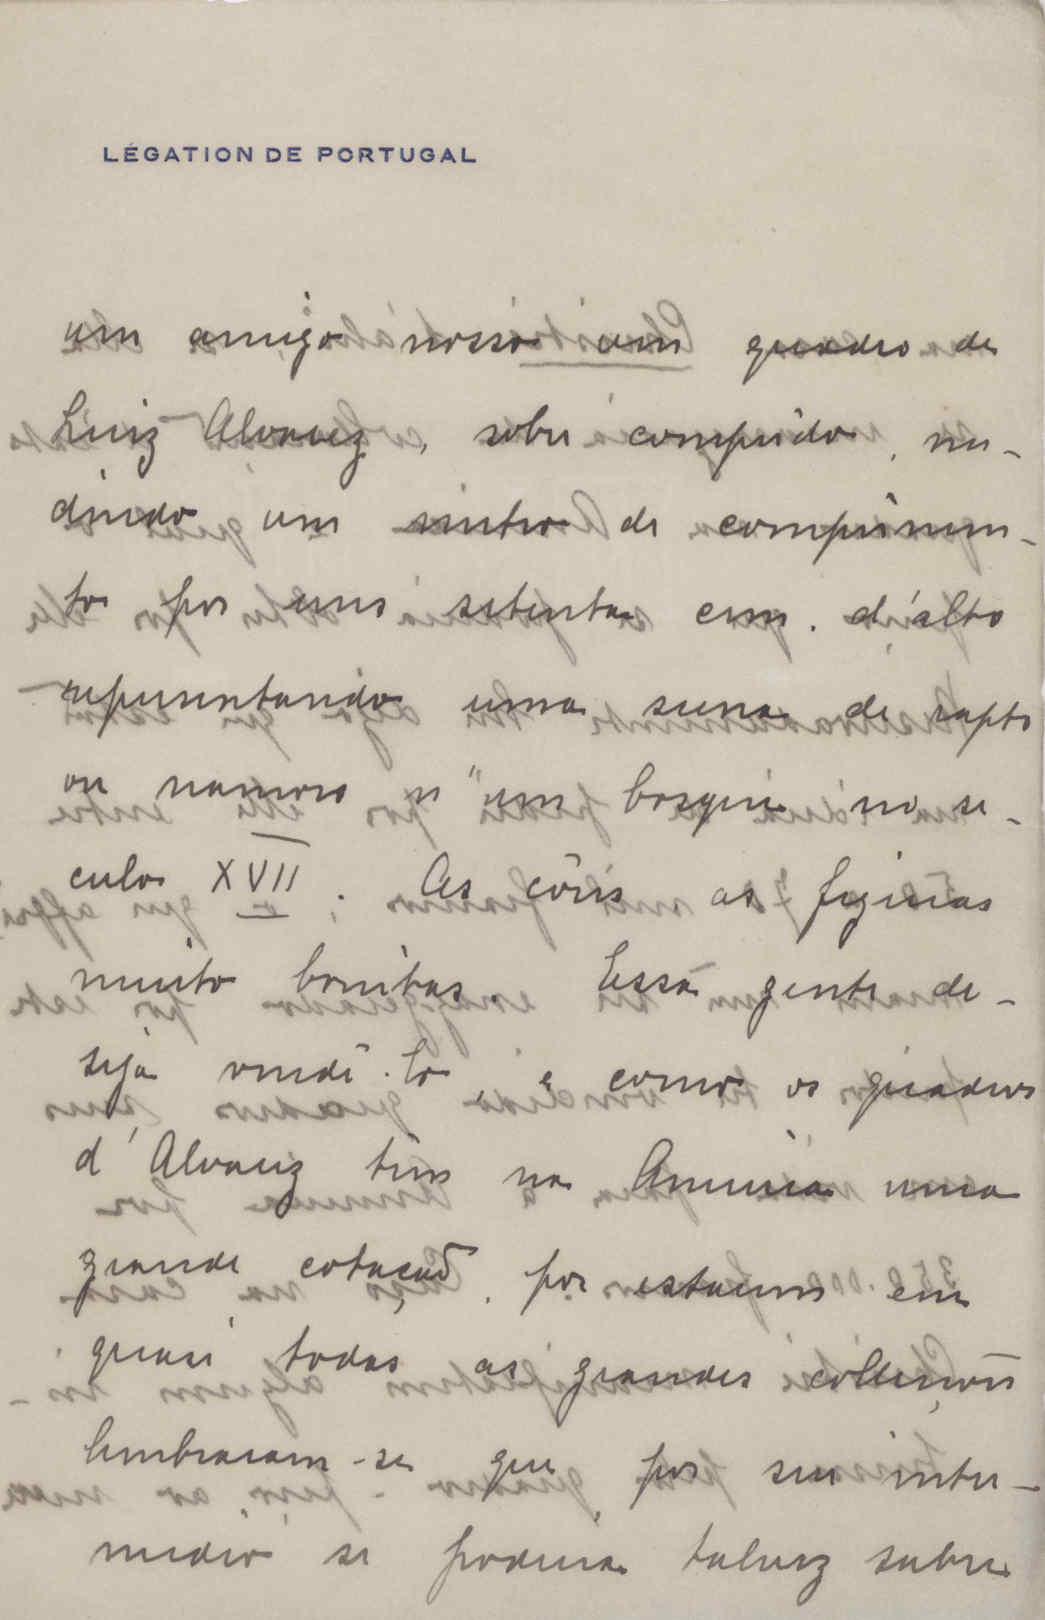 LÉGATION DE PORTUGAL
um amigo nosso um quadro de
Luiz Alvarez, sobre comprido, me-
dindo um metro de comprimen-
to por uns setenta cm. d'alto
representando uma scena de rapto
ou namoro n'um bosque no se-
culo XVII. As côres as figuras
muito bonitas. Essa gente de-
seja vendê-lo, e como os quadros
d'Alvarez têm na America uma
grande cotação, por estarem em
quasi todas as grandes collecções
lembraram-se que por seu inter-
medio se poderia talvez saber